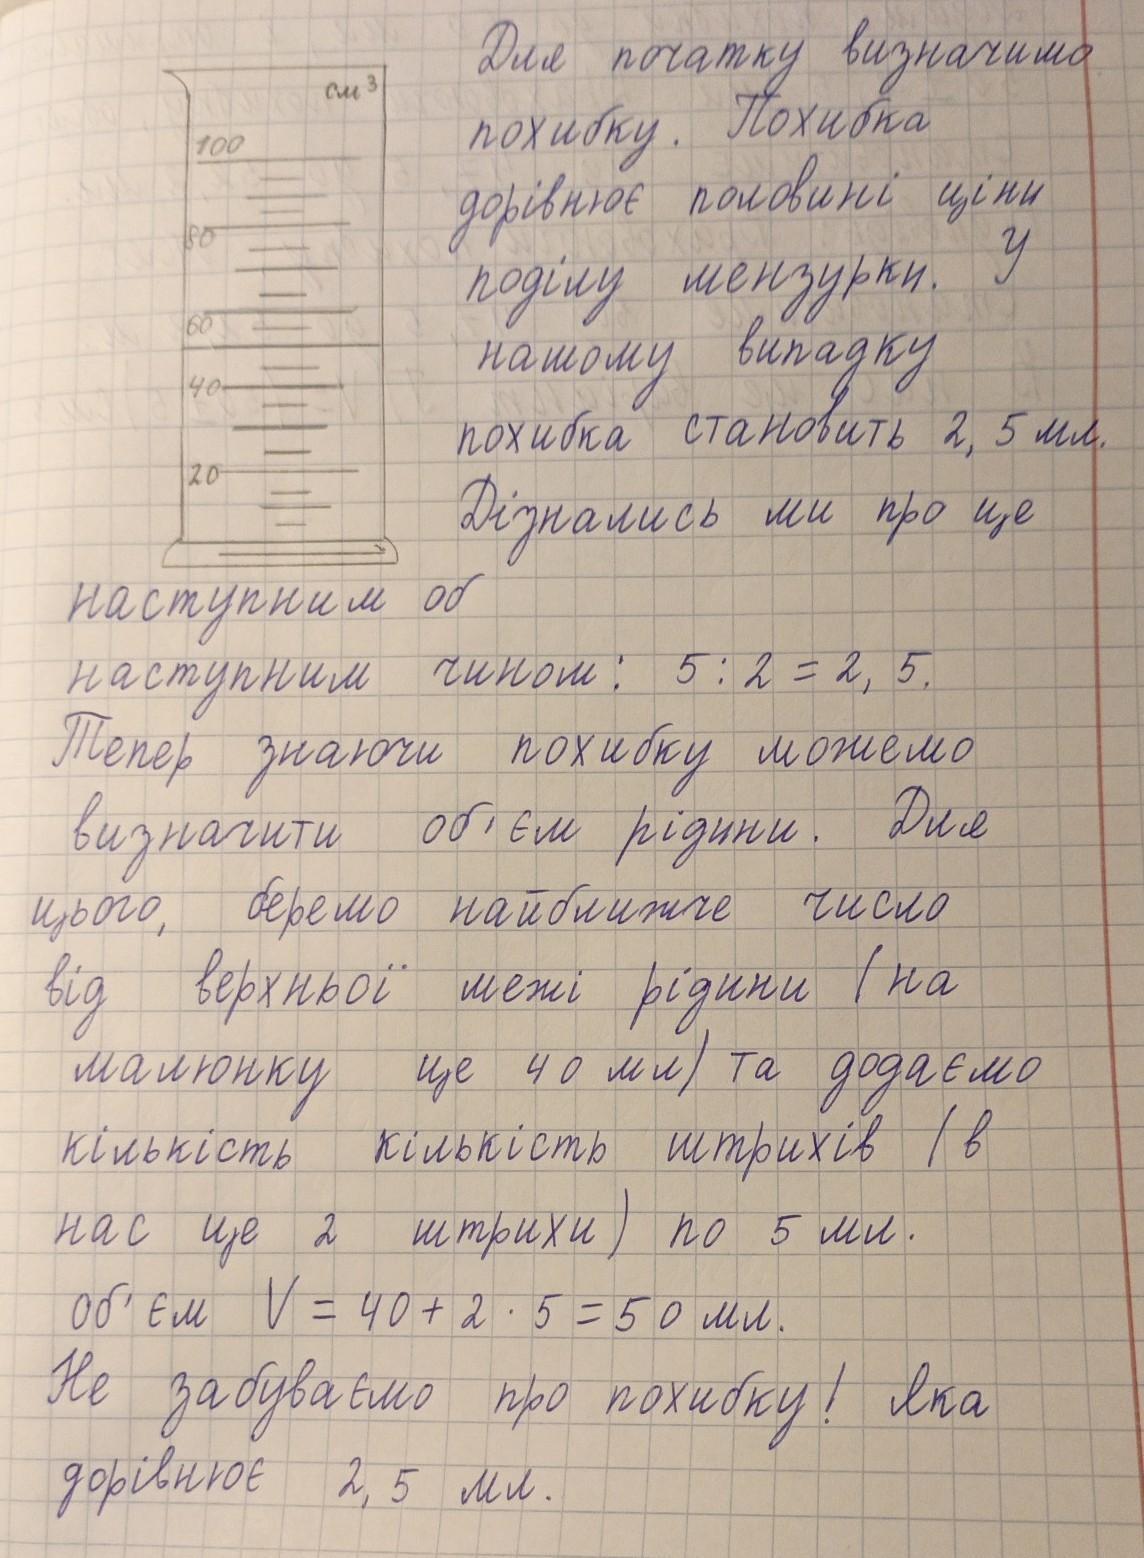 см³
100
80
60
40
20
Для початку визначимо
похибку. Похибка
дорівнює половині ціни
поділу мензурки. У
нашому випадку
похибка становить 2,5 мл.
Дізнались ми про це
наступним об
наступним чином: 5:2=2,5.
Тепер знаючи похибку можемо
визначити об'єм рідини. Для
цього, беремо найближче число
від верхньої межі рідини (на
малюнку це 40 мл) та додаємо
кількість кількість штрихів (в
нас це 2 штрихи) по 5 мл.
об'єм V = 40 + 2 · 5 = 50 мл.
Не забуваємо про похибку! Яка
дорівнює 2,5 мл.